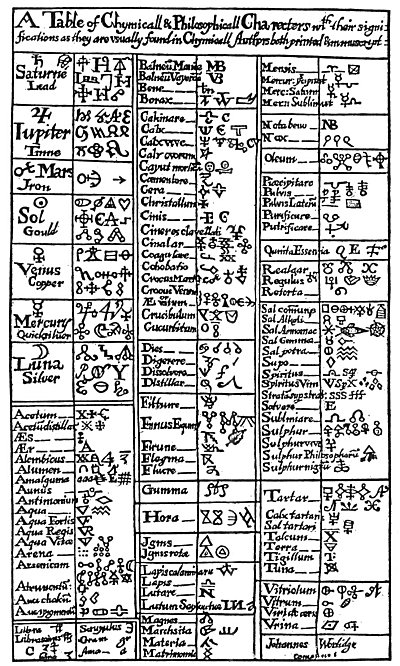 A Table of Chymicall & Philosophicall Charecters wth their signi-
fications as they are usually found in Chymicall Authors both printed & manuscript
Saturne
Lead
Iupiter
Tinne
Mars
Iron
Sol
Gould
Venus
Copper
Mercury
Quicksilver
Luna
Silver
Acetum
Acetu distillat
Æs
Ær
Alembicus
Alumen
Amalgama
Annus
Antimonium
Aqua
Aqua Fortis
Aqua Regis
Aqua Vitæ
Arena
Arsenicum
Atramentu
Aurichalcu
Auripigmentu
Libra
C
Scrupulus
Gran
Ana
Balneu Mariæ MB
Balneu Vaporis VB
Bene
Borax
Calcinare
Calx
Calx vive
Calx ovorum
Caput mortuu
Cæmentare
Cera
Christallum
Cinis
Cineres clavellati
Cinabar
Coagulare
Cohobatio
Crocus Martis
Crocus Veneris
Æs ustum
Crucibulum
Cucurbitum
Dies
Digerere
Dissolvere
Distillar
Filtrare
Fimus Equinus
Flegma
Fluere
Gumma
Hora
Ignis
Ignis rotæ
Lapis calaminare
Lapis
Lutare
Lutum Sapientiæ
Magnes
Marchsita
Materia
Matrimonium
Mensis
Mercur: Precipitat
Merc: Saturni
Merc: Sublimat
Nota bene NB
Nox
Oleum
Præcipitare
Pulvis
Pulvis Laterum
Purificare
Putrificare
Quinta Essentia Q E
Realgar
Regulus
Retorta
Sal comune
Sal Alkali
Sal Armoniac
Sal Gemma
Sal petra
Sapo
Spiritus
Spiritus Vini
Stratum super strat: SSS
Solvere
Sublimare
Sulphur
Sulphur vive
Sulphur Philosophoru
Sulphur nigru
Tartar
Calx tartari
Sal tartari
Talcum
Terra
Tigillum
Tutia
Vitriolum
Vitrum
Viride æris
Urina
Johannes Worlidge